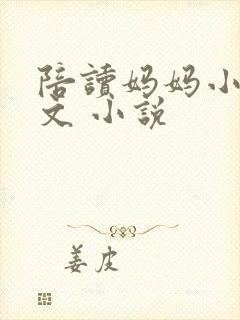 陪讀妈妈小
文 小說
姜皮